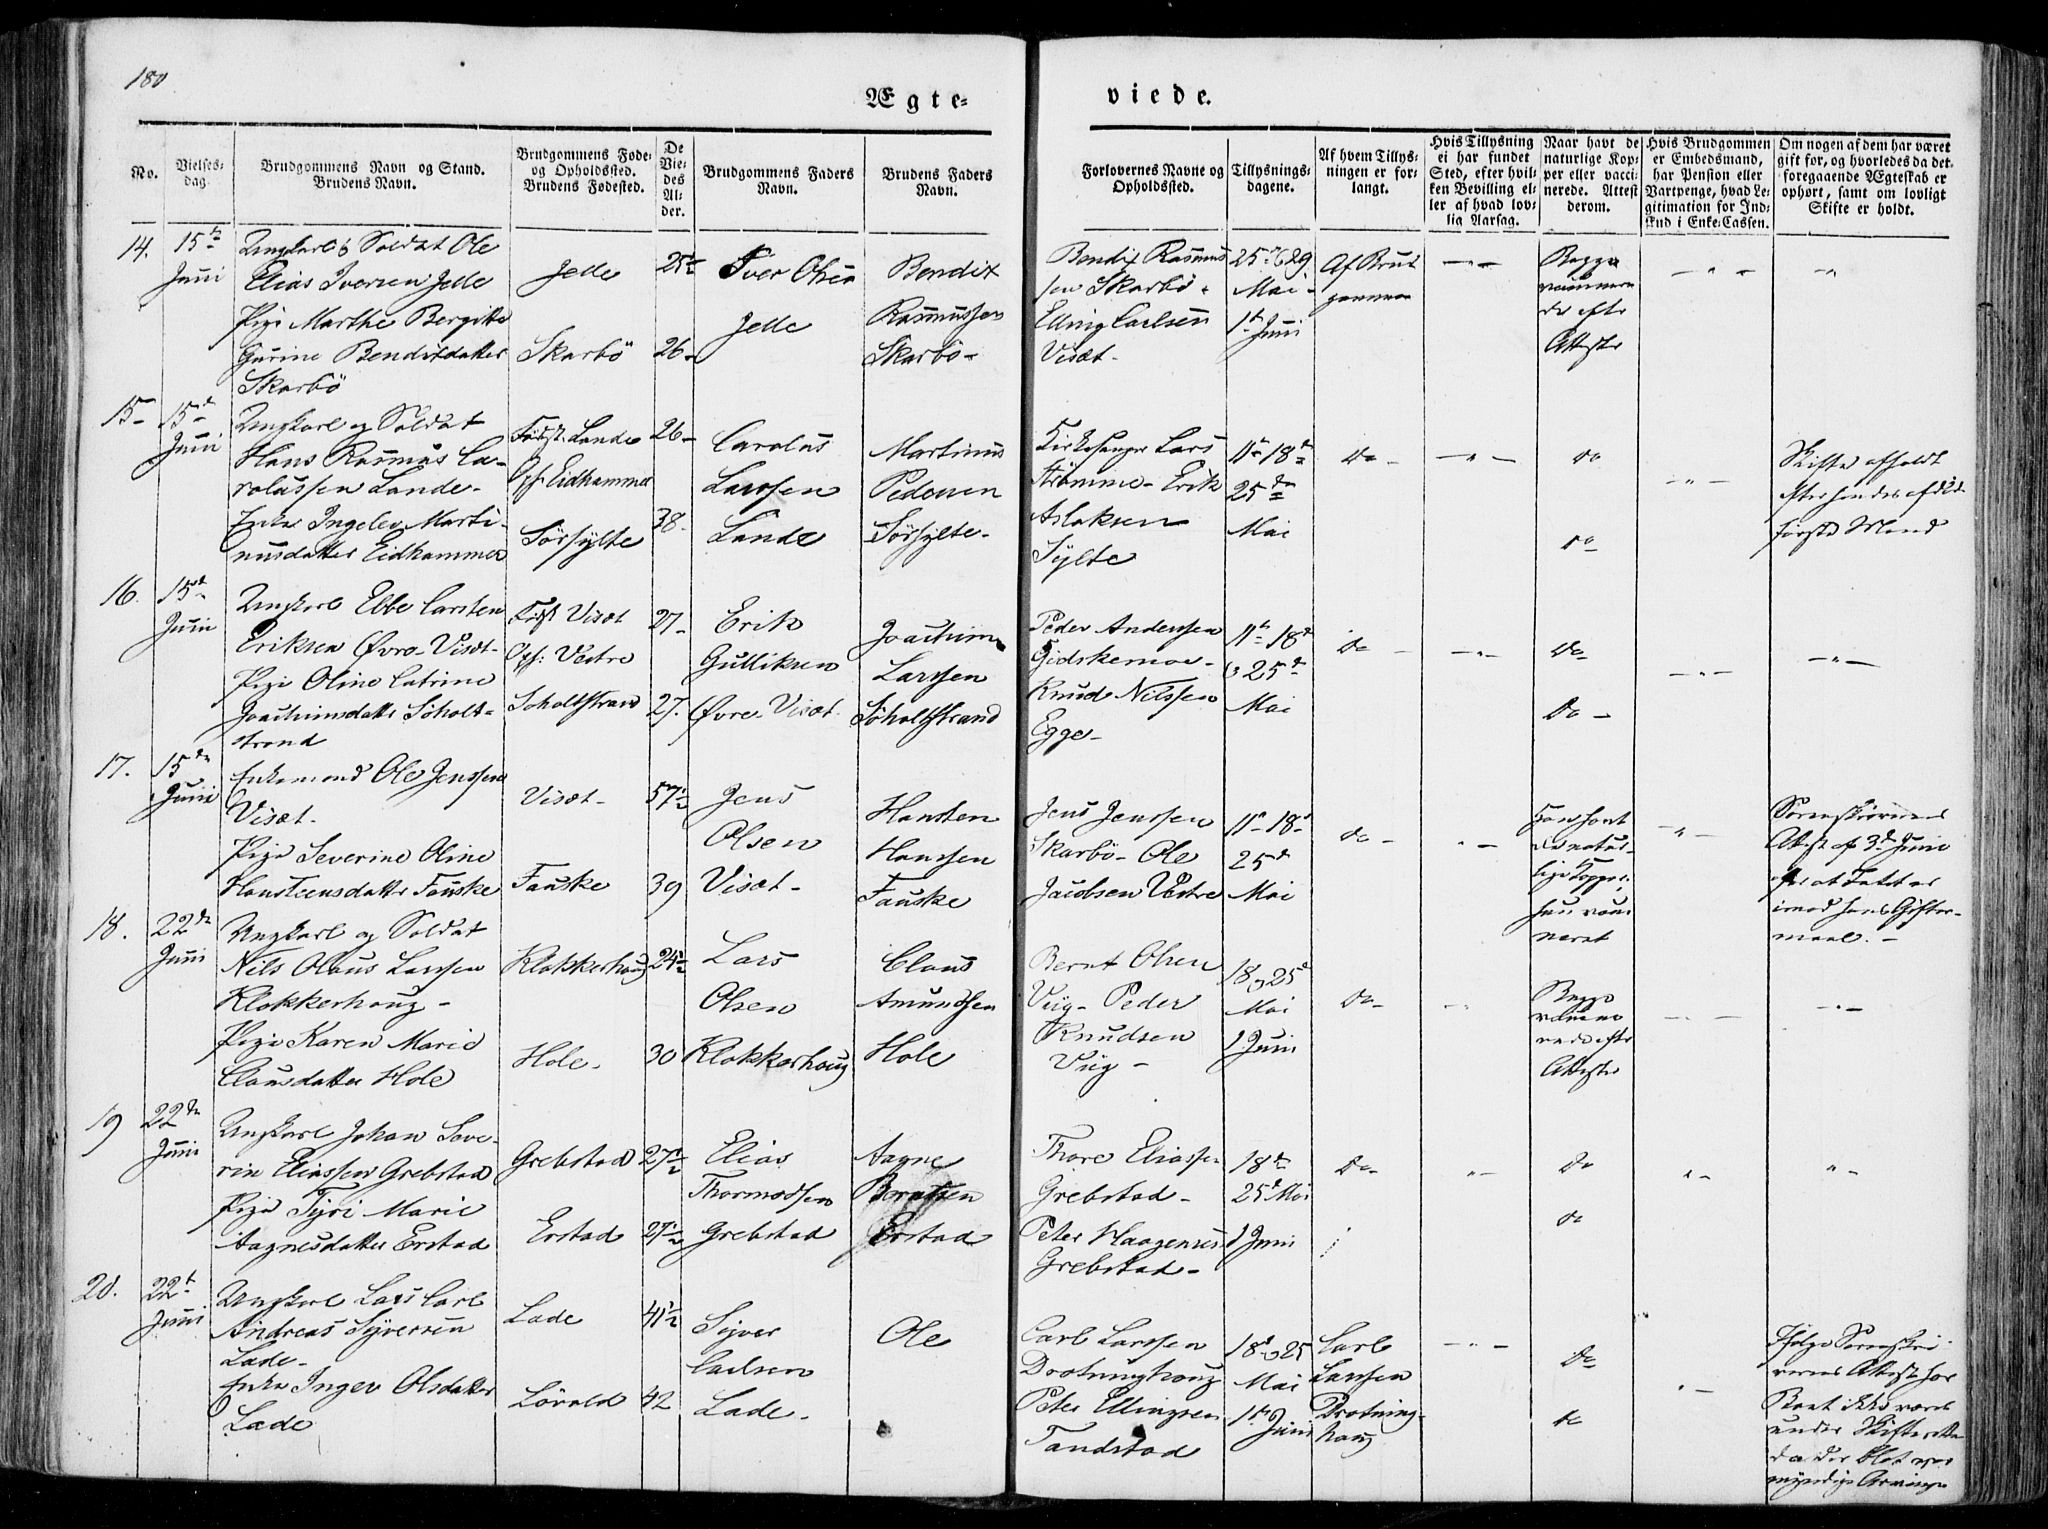 180
Ægte-
viede.
No.
Vielses-
dag.
Brudgommens Navn og Stand.
Brudens Navn.
Brudgommens Føde-
og Opholdsted.
Brudens Fødested.
De
Vie-
des
Al-
der.
Brudgommens Faders
Navn.
Brudens Faders
Navn.
Forlovernes Navne og
Opholdsted.
Tillysnings-
dagene.
Af hvem Tillys-
ningen er for-
langt.
Hvis Tillysning
ei har fundet
Sted, efter hvil-
ken Bevilling el-
ler af hvad lov-
lig Aarsag.
Naar havt de
naturlige Kop-
per eller vacci-
nerede. Attest
derom.
Hvis Brudgommen
er Embedsmand,
har Pension eller
Vartpenge, hvad Le-
gitimation for Ind-
skud i Enke-Cassen.
Om nogen af dem har været
gift for, og hvorledes da det
foregaaende Ægteskab er
ophørt, samt om lovligt
Skifte er holdt.
14.
15
Juni
Ungkarl & Soldat Ole
Elias Iversen Jelle
Pige Marthe Bergitte
Gurine Bendixdatter
Skarbö
Jelle
Skarbö
25½
26-
Iver Olsen
Jelle
Bendix
Rasmussen
Skarbö-
Bendix Rasmus
sen Skarbö
Elling Carlsen
Visæt-
25 29
Mai
1t Juni
Af Brud
gommen
Begge
vaccinere
de efter
Attester
15-
15de
Juni
Ungkarl og Soldat
Hans Rasmus Ca-
rolussen Lande-
Enke Ingelev Marti-
nusdatter Eidhammer
Födst: Lande
Oph: Eidhammer
Sörsylte
26-
38-
Carolus
Larssen
Lande
Martinus
Pedersen
Sörsylte-
Kirkesanger Lars
Strømme- Erik
Aslaksen
Sylte
11te 18de
25de
Mai
do -
do
do
Skifte afholdt
efter hendes afdöde
förste Mand
16.
15de
Juni
Ungkarl Ebbe Carsten
Eriksen Øvre-Visæt-
Pige Oline Catrine
Joachimsdatter Søholt-
strand
Födt Visæt
Oph: Vestre
Søholtstrand
27-
27.
Erik
Gulliksen
Øvre-Visæt
Joachim
Larssen
Søholtstrand
Peder Anderssen
Gidskemoe-
Knud Nilssen
Egge-
11te 18de
& 25de
Mai
do -
do-
do -
17.
15de
Juni
Enkemand Ole Jenssen
Visæt-
Pige Severine Oline
Hansteensdatter Fauske
Visæt-
Fauske
57½
39
Jens
Olsen
Visæt-
Hansten
Hanssen
Fauske
Jens Jenssen
Skarbö- Ole
Jacobsen Vestre
11te 18de
25de
Mai
do -
Han havt
de natur-
lige Kopper;
hun vacci
neret
Sorenskriverens
Attest af 3de Juni
for at Intet er
imod hans Gifter-
maal. -
18.
22de
Juni
Ungkarl og Soldat
Nils Olaus Larssen
Klokkerhoug-
Pige Karen Marie
Clausdatter Hole
Klokkerhoug
Hole-
24½
30
Lars
Olsen
Klokkerhoug
Claus
Amundsen
Hole
Bernt Olsen
Viig- Peder
Knudsen
Viig -
18 & 25de
Mai
1 Juni
do -
Begge
vacci
nerede efter
Attester
19
22de
Juni
Ungkarl Johan Seve-
rin Eliassen Grebstad
Pige Tyri Marie
Aagnesdatter Erstad
Grebstad
Erstad
27½
27½
Elias
Thormodsen
Grebstad
Aagne
Berntsen
Erstad
Thore Eliassen
Grebstad-
Peter Haagensen
Grebstad-
18de
25de Mai
1 Juni
do-
do
do
20.
22t
Juni
Ungkarl Lars Carl
Andreas Syversen
Lade-
Enke Inger Olsdatter
Lade
Lade
Lövold
41½
42
Syver
Carlsen
Lade-
Ole
Carl Larssen
Drotninghoug
Peter Ellingsen
Tandstad
18de & 25
Mai
1te Juni
Carl
Larssen
Drotning-
houg
do
do
Ifølge Sorenskri-
verens Attest har
Boet ikke været
under Skifteretten
da der blot var
myndige Arvinger